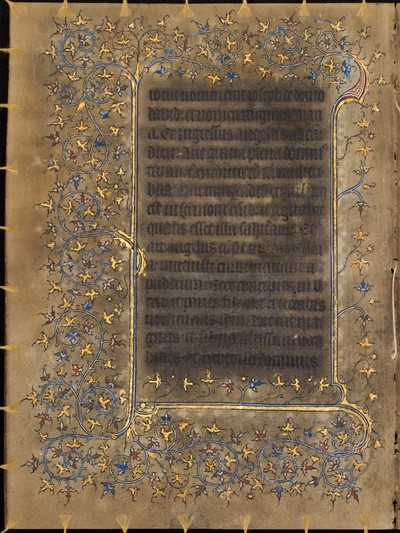 ro cui nomen erat ioseph de domo
dauid et nomen uirginis mari
a. Et ingressus angelus ad eam
dixit. Aue gratia plena domin
tecum benedicta tu in mulieri
bus. Que cum audisset turbata
est in sermone eius et cogitabat
qualis esset ista salutatio. Et
ait angelus ei. Ne timeas mari
a inuenisti enim gratiam a
pud deum ecce concipies in u
tero et paries filium et uocabis
nomen eius ihm. Hic erit ma
gnus et filius altissimi uoca
bitur et dabit illi dominus